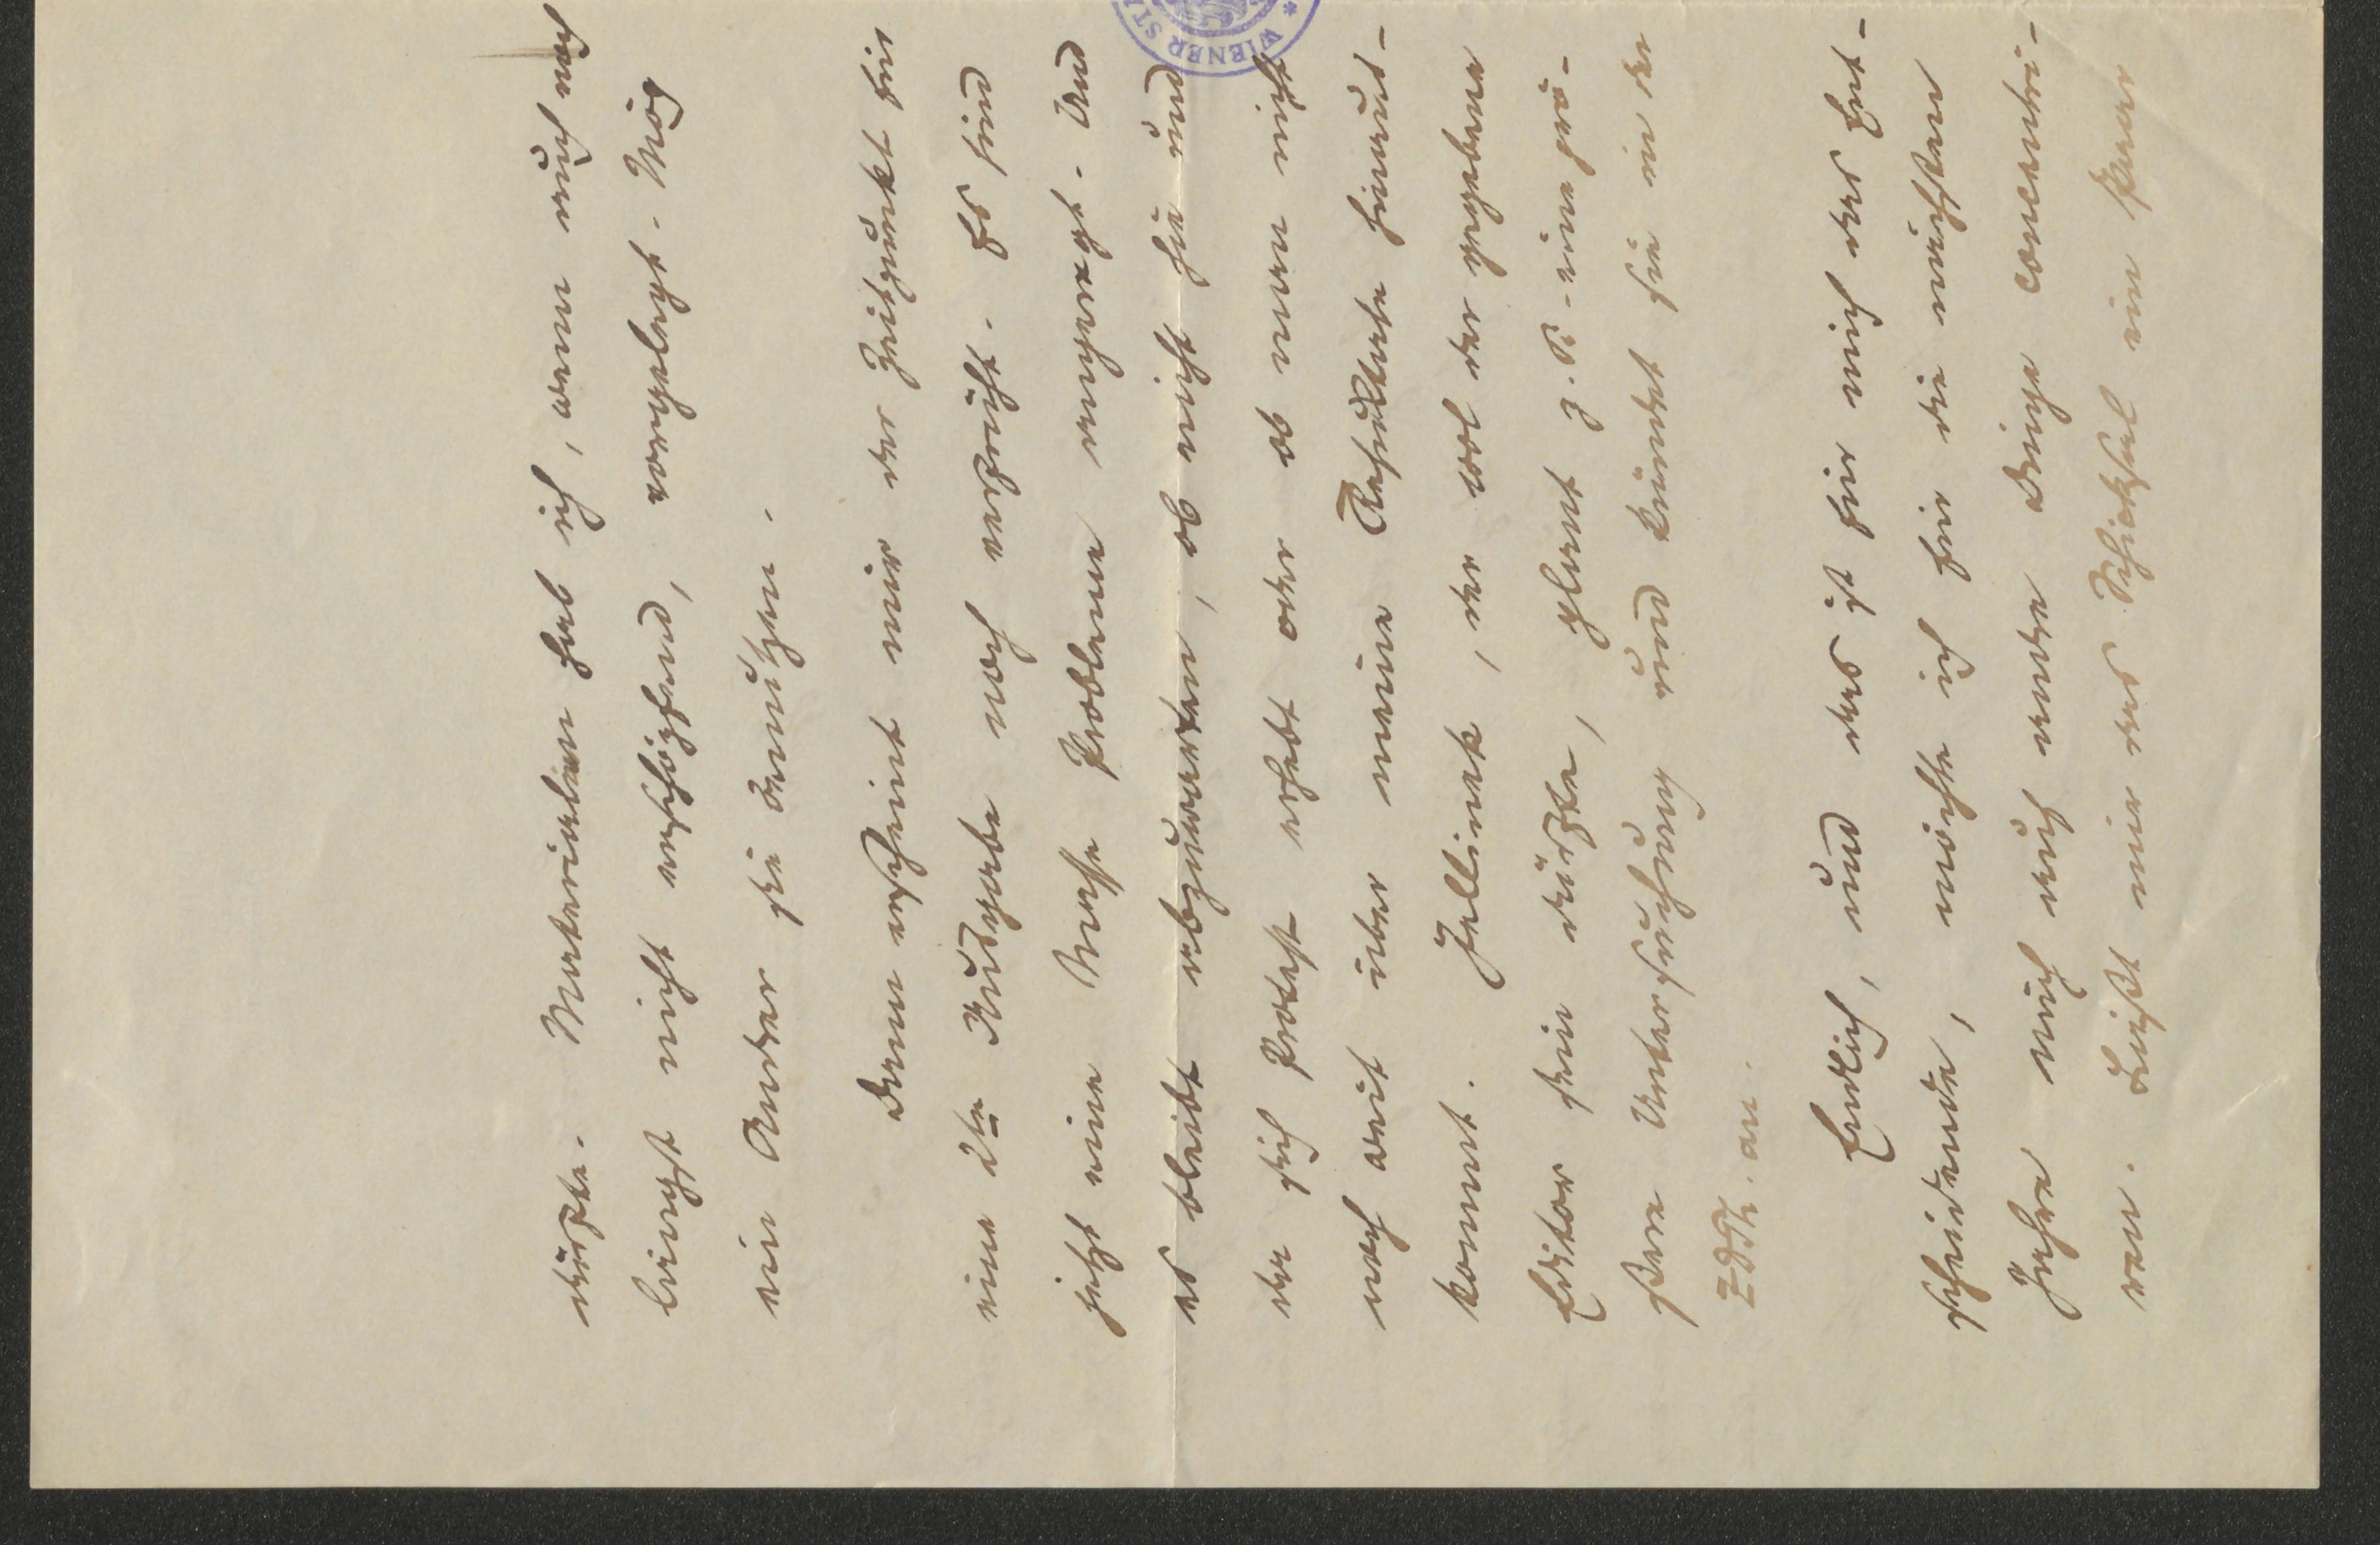 dürfte. Materialien hab ich, wenn auch noch
längst nicht erschöpfend, vorgelegt. Mög
ein Andrer sie benützen.
Dann erscheint mir der Zeitpunkt für
eine 2te Ausgabe noch verfrüht. Es sind
jetzt eine Masse Probleme angeregt. Und
es bleibt abzuwarten, ob nicht hie und
da sich Protest erhebt oder ob man nicht
noch weit über meine Resultate hinaus-
kommt. Jellinek, der wol der gegebene
Editor sein dürfte, plant z. B. eine grö-
ßere Untersuchung und kündet sie in der
ZDPh. an.
Endlich, und das ist für mich das Ent-
scheidende, möchte ich für die nächsten
Jahre mich auf andre Dinge concentri-
ren. Läßt mir das Schicksal ein paar
WIENER ST